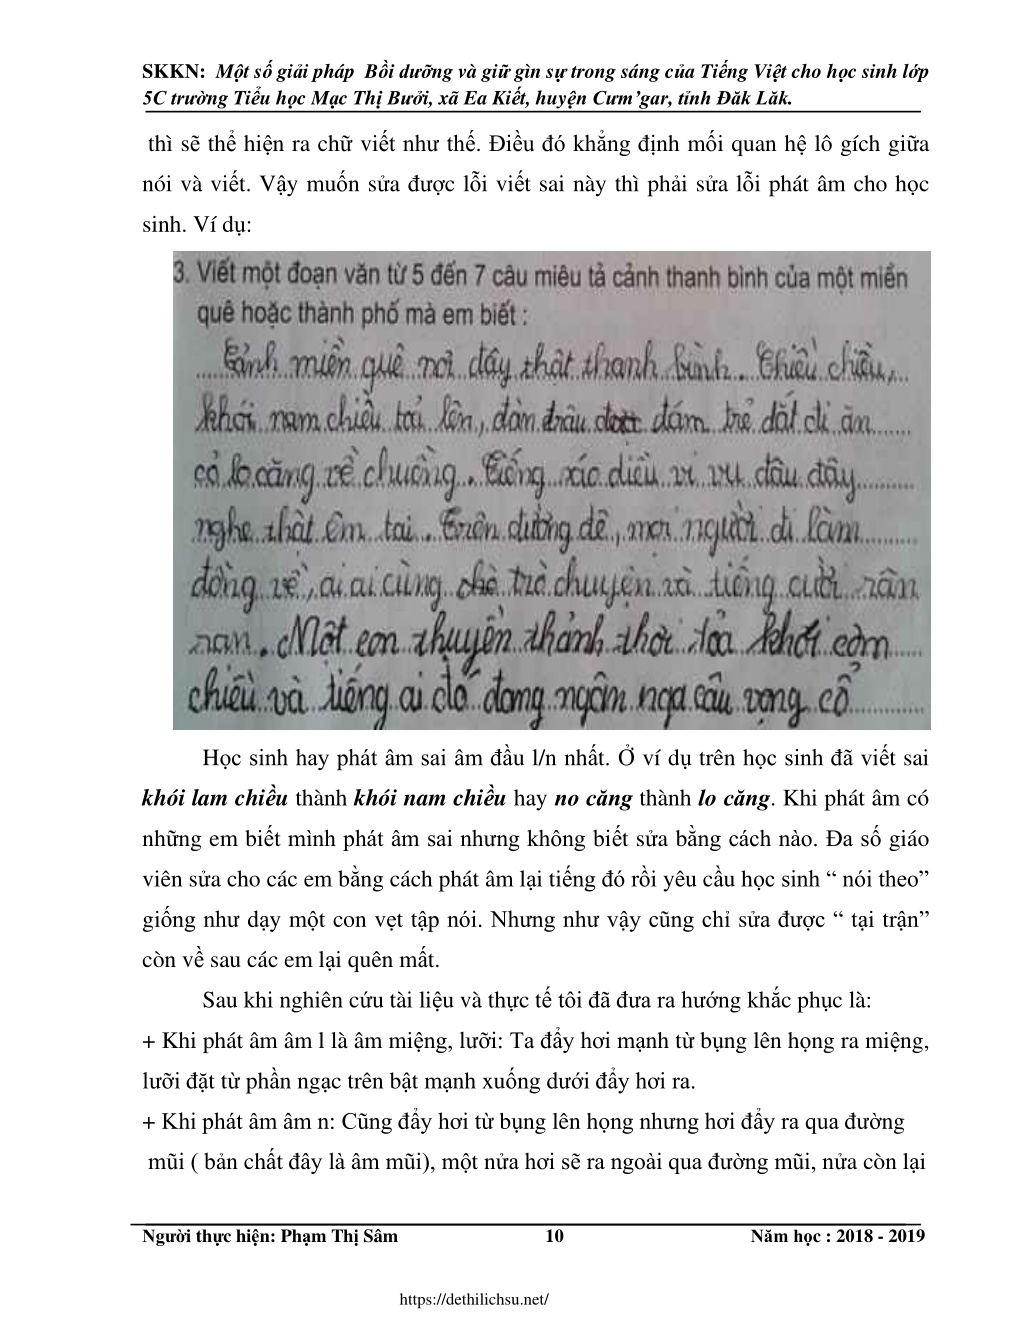 SKKN: Một số giải pháp Bồi dưỡng và giữ gìn sự trong sáng của Tiếng Việt cho học sinh lớp
5C trường Tiểu học Mạc Thị Bưởi, xã Ea Kiết, huyện Cưm’gar, tỉnh Đăk Lăk.
thì sẽ thể hiện ra chữ viết như thế. Điều đó khẳng định mối quan hệ lô gích giữa
nói và viết. Vậy muốn sửa được lỗi viết sai này thì phải sửa lỗi phát âm cho học
sinh. Ví dụ:
3. Viết một đoạn văn từ 5 đến 7 câu miêu tả cảnh thanh bình của một miền
quê hoặc thành phố mà em biết :
Cảnh miền quê nơi đây thật thanh bình. Chiều chiều,
khói nam chiều toả lên, đàn trâu được đám trẻ dắt đi ăn
cỏ lo căng về chuồng. Tiếng sáo diều vi vu đâu đây
nghe thật êm tai. Trên đường đê, mọi người đi làm
đồng về, ai ai cùng trò chuyện và tiếng cười rân
ran. Một con thuyền thảnh thơi toả khói cơm
chiều và tiếng ai đó đang ngâm nga câu vọng cổ
Học sinh hay phát âm sai âm đầu l/n nhất. Ở ví dụ trên học sinh đã viết sai
khói lam chiều thành khói nam chiều hay no căng thành lo căng. Khi phát âm có
những em biết mình phát âm sai nhưng không biết sửa bằng cách nào. Đa số giáo
viên sửa cho các em bằng cách phát âm lại tiếng đó rồi yêu cầu học sinh “ nói theo”
giống như dạy một con vẹt tập nói. Nhưng như vậy cũng chỉ sửa được “ tại trận”
còn về sau các em lại quên mất.
Sau khi nghiên cứu tài liệu và thực tế tôi đã đưa ra hướng khắc phục là:
+ Khi phát âm âm l là âm miệng, lưỡi: Ta đẩy hơi mạnh từ bụng lên họng ra miệng,
lưỡi đặt từ phần ngạc trên bật mạnh xuống dưới đẩy hơi ra.
+ Khi phát âm âm n: Cũng đẩy hơi từ bụng lên họng nhưng hơi đẩy ra qua đường
mũi ( bản chất đây là âm mũi), một nửa hơi sẽ ra ngoài qua đường mũi, nửa còn lại
Người thực hiện: Phạm Thị Sâm 10 Năm học : 2018 - 2019
https://dethilichsu.net/